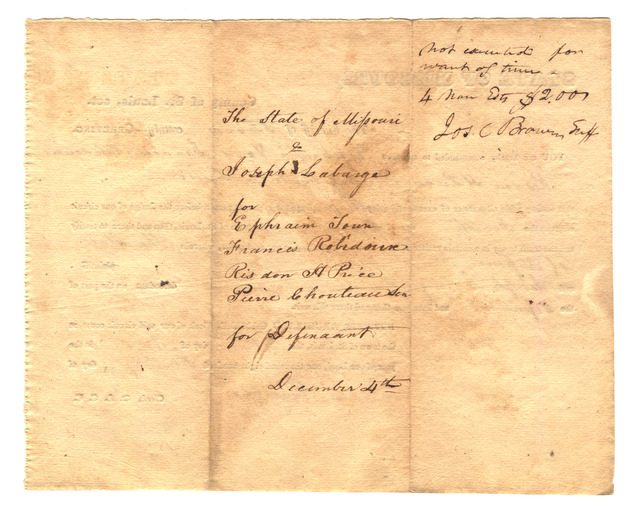 The State of Missouri
&
Joseph Labarge
for
Ephraim Town
Francis Robidoux
Risdon H Price
Pierre Chouteau Sen
for Defendant
December 4th
not executed for
want of time
4 Non Est $2.00
Jos. C Brown Shff